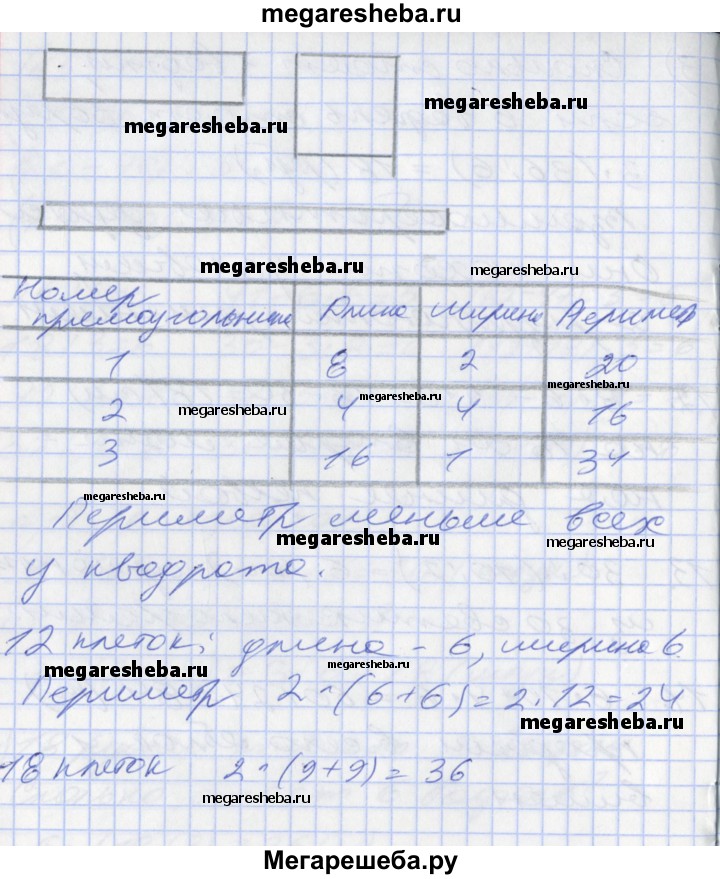 megaresheba.ru
megaresheba.ru
megaresheba.ru
megaresheba.ru
megaresheba.ru
Номер прямоугольника Длина Ширина Периметр
1 8 2 20
megaresheba.ru
megaresheba.ru
2 4 4 16
megaresheba.ru
3 16 1 34
megaresheba.ru
Периметр меньше всех
megaresheba.ru
megaresheba.ru
у квадрата.
12 клеток; длина - 6, ширина 6
megaresheba.ru
megaresheba.ru
Периметр 2·(6+6)=2·12=24
megaresheba.ru
18 клеток 2·(9+9)=36
megaresheba.ru
Мегарешеба.ру